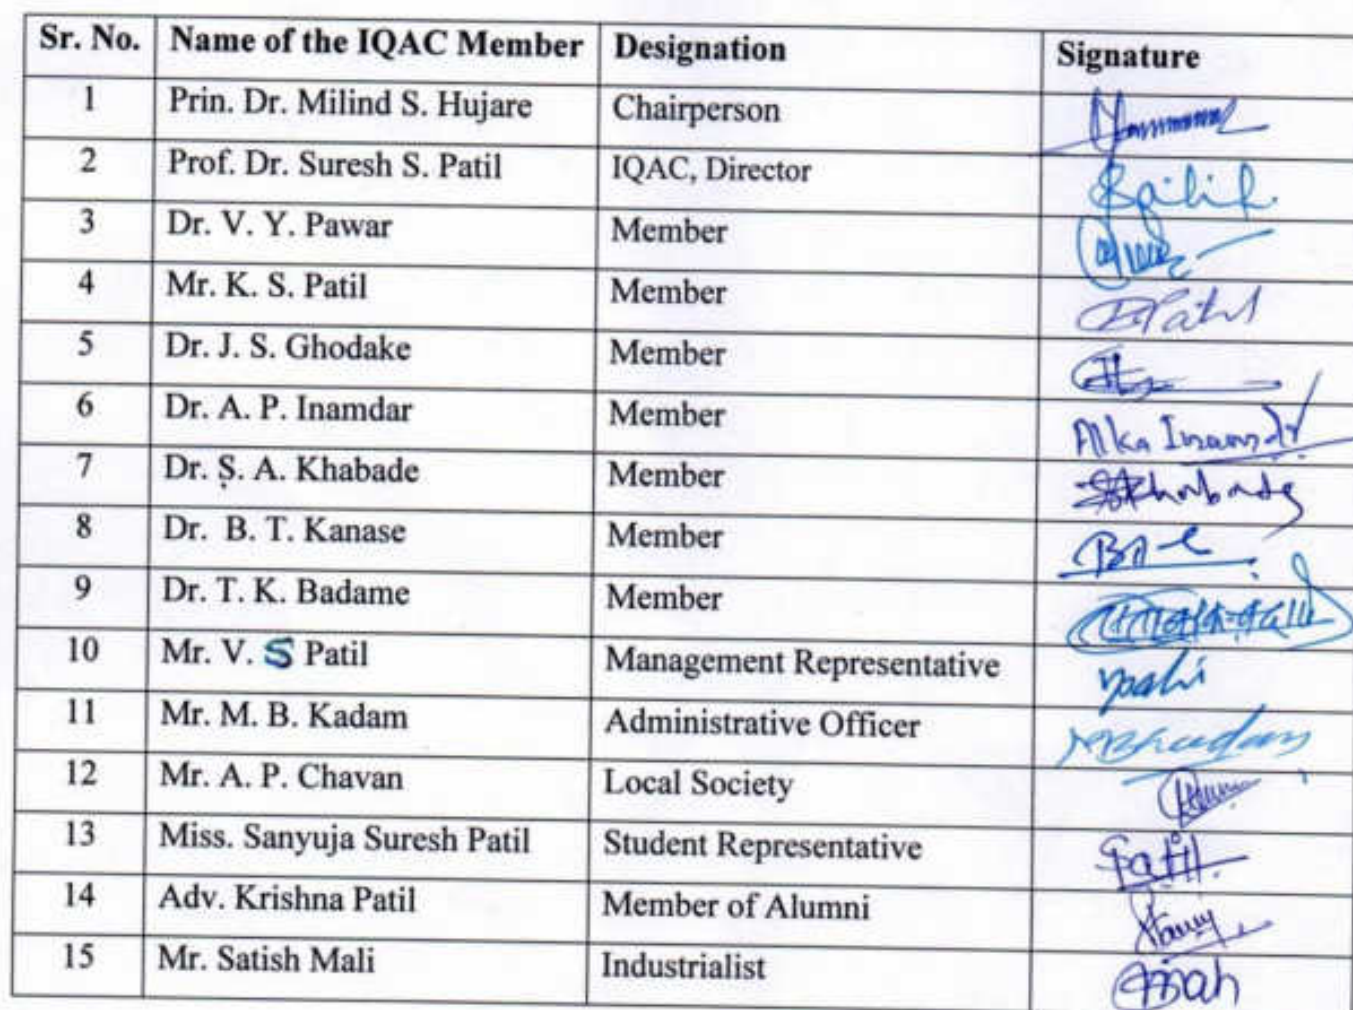 Sr. No. Name of the IQAC Member Designation Signature
1 Prin. Dr. Milind S. Hujare Chairperson
2 Prof. Dr. Suresh S. Patil IQAC, Director
3 Dr. V. Y. Pawar Member
4 Mr. K. S. Patil Member Patil
5 Dr. J. S. Ghodake Member
6 Dr. A. P. Inamdar Member Alka Inamdar
7 Dr. S. A. Khabade Member Khabade
8 Dr. B. T. Kanase Member
9 Dr. T. K. Badame Member
10 Mr. V. S Patil Management Representative
11 Mr. M. B. Kadam Administrative Officer
12 Mr. A. P. Chavan Local Society
13 Miss. Sanyuja Suresh Patil Student Representative Patil
14 Adv. Krishna Patil Member of Alumni
15 Mr. Satish Mali Industrialist